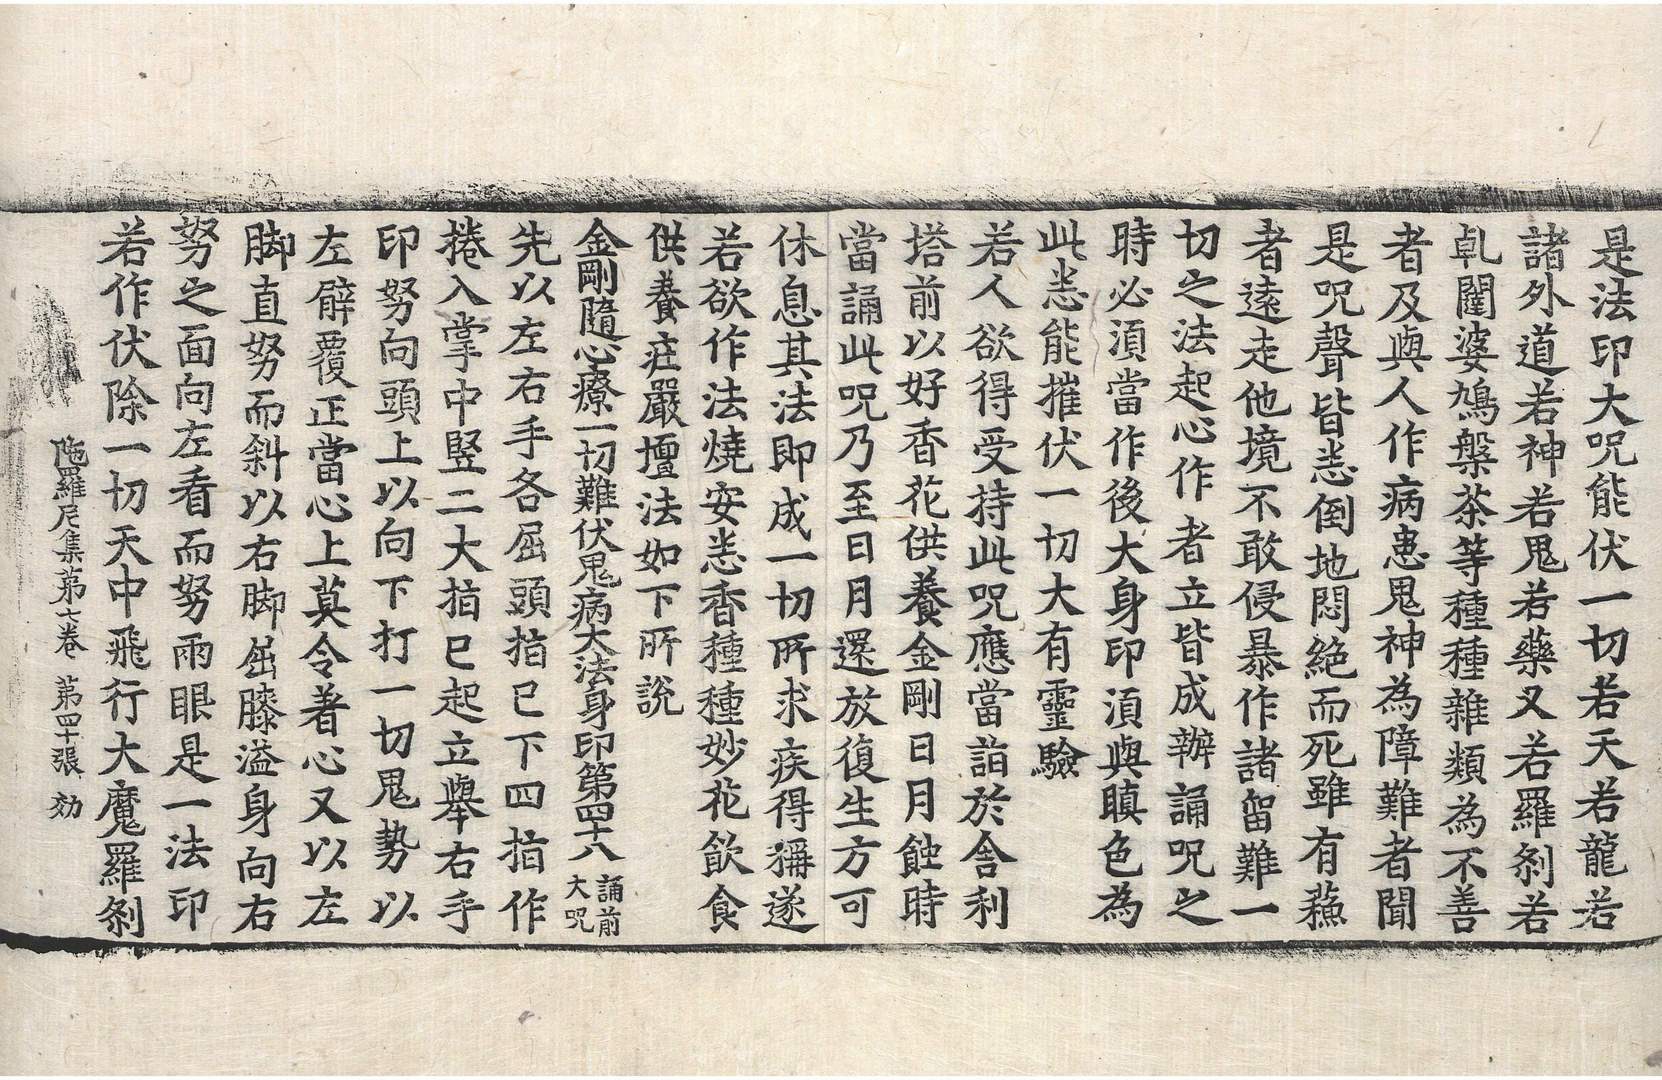 是法印大呪能伏一切若天若龍若
諸外道若神若鬼若藥叉若羅剎若
乹闥婆鳩槃茶等種種雜類為不善
者及與人作病患鬼神為障難者聞
是呪聲皆悉倒地悶絶而死雖有蘓
者遠走他境不敢侵暴作諸留難一
切之法起心作者立皆成辦誦呪之
時必湏當作後大身印湏與瞋色為
此悉能摧伏一切大有靈驗
若人欲得受持此呪應當詣於舍利
塔前以好香花供養金剛日月蝕時
當誦此呪乃至日月還放復生方可
休息其法即成一切所求疾得稱遂
若欲作法燒安悉香種種妙花飲食
供養莊嚴壇法如下所說
金剛隨心療一切難伏鬼病大法身印第四十八 誦前大呪
先以左右手各屈頭指巳下四指作
捲入掌中竪二大指巳起立舉右手
印努向頭上以向下打一切鬼勢以
左臂覆正當心上莫令著心又以左
脚直努而斜以右脚屈膝溢身向右
努之面向左看而努兩眼是一法印
若作伏除一切天中飛行大魔羅剎
陁羅尼集第七卷 第四十張 効